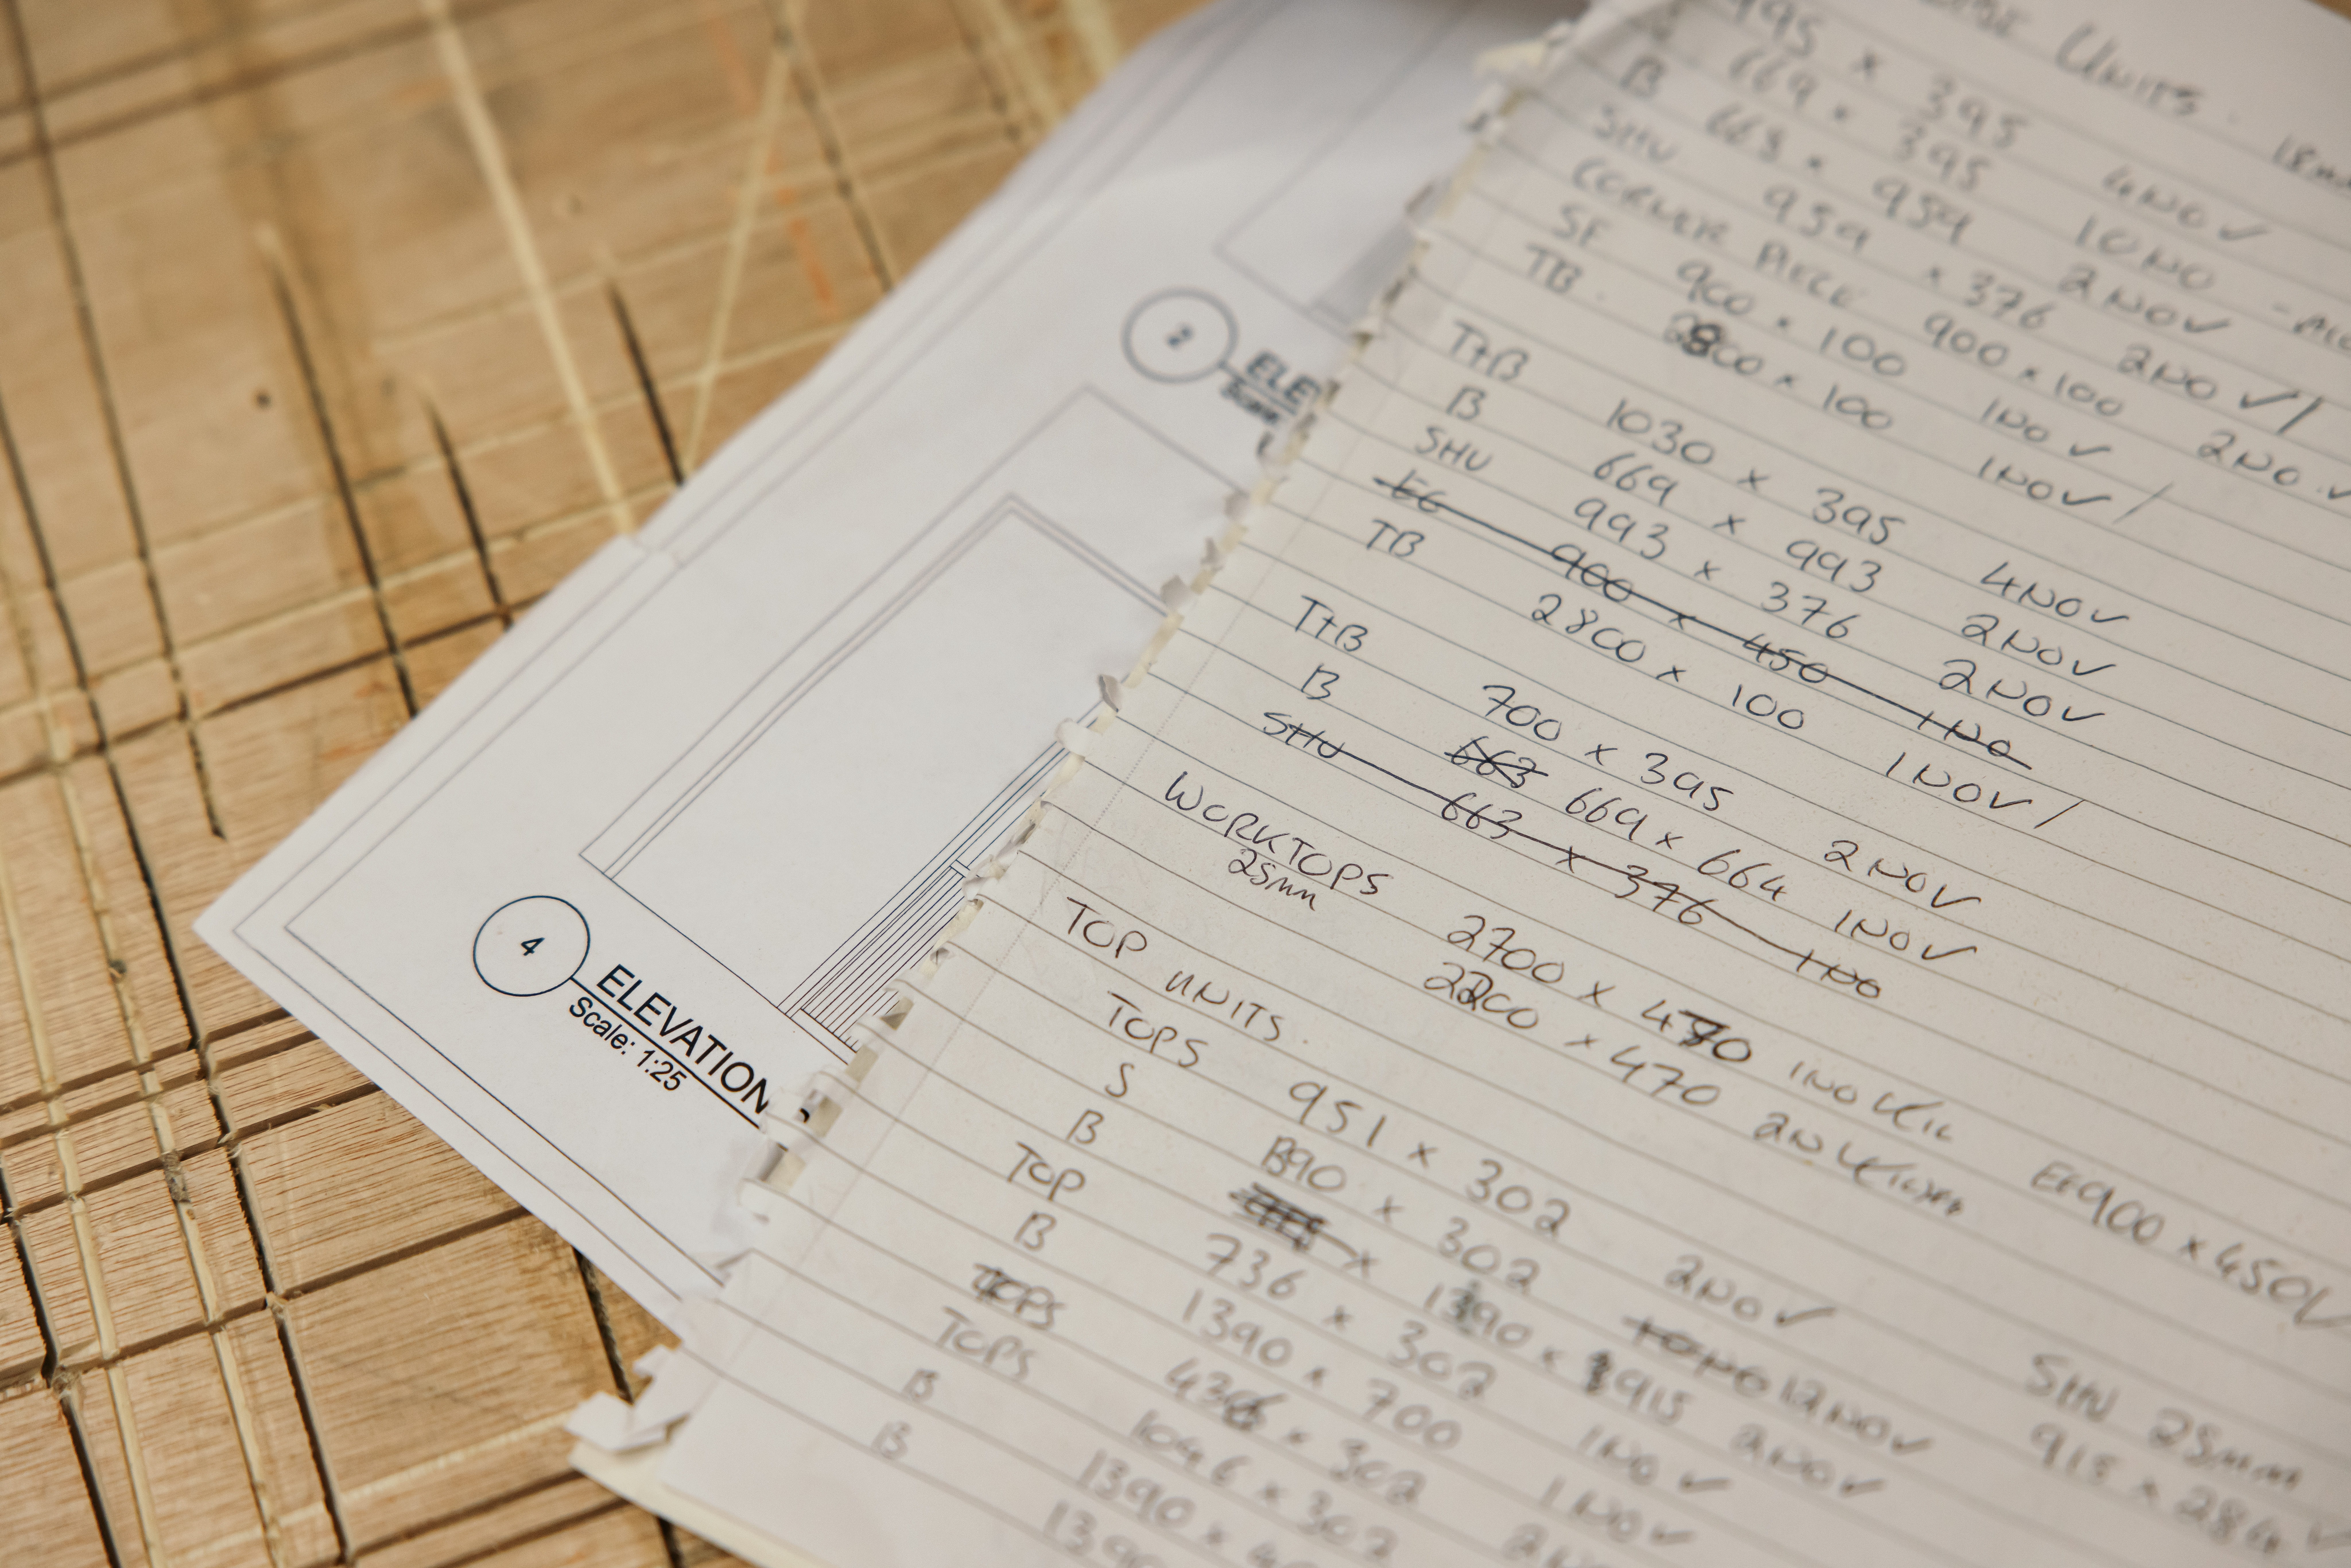 UNITS.
18mm
995 × 395 4NO ✓
669 × 395 10NO
B 663 × 959 2NO ✓
SHU 959 × 376 2NO ✓ /
CORNER PIECE 900 × 100 2NO. ✓
SF 900 × 100 1NO ✓
TB. 2800 × 100 1NO ✓ /
T+B 1030 × 395 4NO ✓
B 669 × 993 2NO ✓
SHU 993 × 376 2NO ✓
EG 900 × 450 1NO
TB 2800 × 100 1NO ✓ /
T+B 700 × 395 2NO ✓
B 663 669 × 664 1NO ✓
SHU 663 × 376 1NO
WORKTOPS 2700 × 470 1NO
25mm 2200 × 470 2NO
EG 900 × 450 ✓
TOP UNITS.
TOPS 951 × 302 2NO ✓
S 890 × 302 10NO 12NO ✓
B × 1390 × 915 2NO ✓
TOP 736 × 302 1NO ✓
B 1390 × 700 1NO ✓
TOPS 436 × 302
TOPS 1046 × 302
B 1390 ×
B 1390
SHV 25mm
915 × 284 ✓
2 ELE
Scale
4 ELEVATION
Scale: 1:25